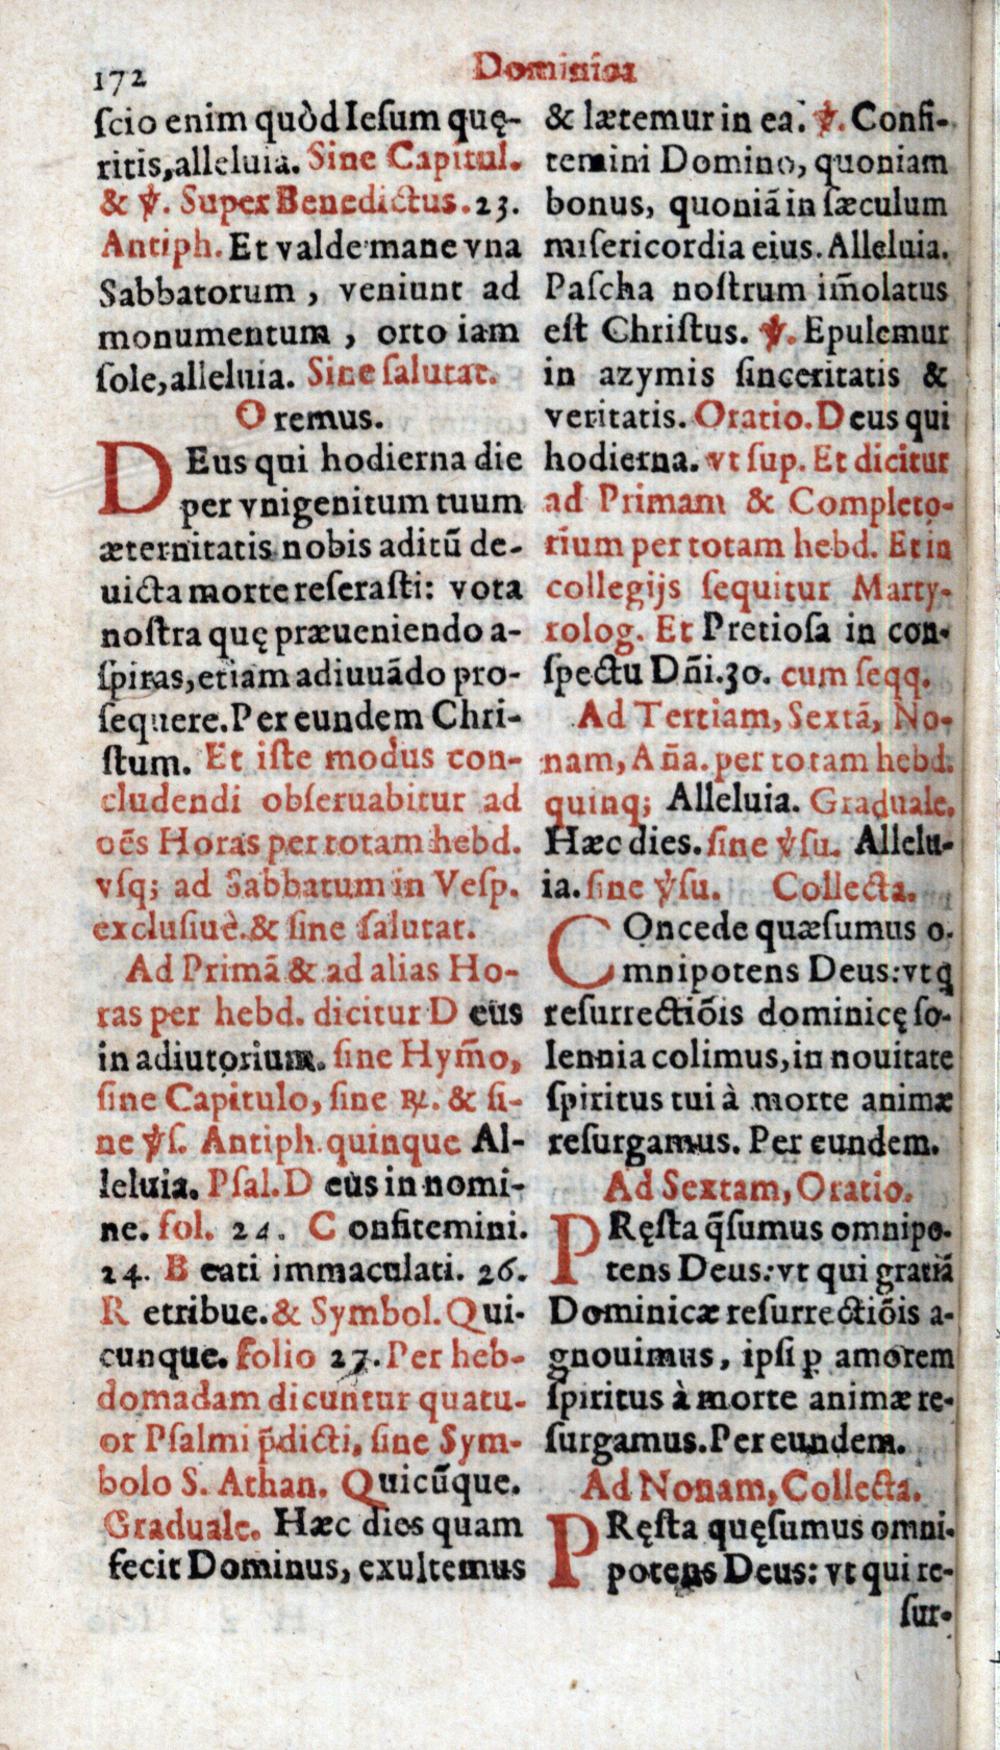 172
Dominica
ſcio enim quòd Ieſum quę-
ritis,alleluia. Sine Capitul.
& ℣. Super Benedictus.23.
Antiph. Et valde mane vna
Sabbatorum , veniunt ad
monumentum , orto iam
ſole,alleluia. Sine ſalutat.
Oremus.
DEus qui hodierna die
per vnigenitum tuum
æternitatis nobis aditũ de-
uicta morte reſeraſti: vota
noſtra quę præueniendo a-
ſpiras,etiam adiuuãdo pro-
ſequere.Per eundem Chri-
ſtum. Et iſte modus con-
cludendi obſeruabitur ad
oẽs Horas per totam hebd.
vſq; ad Sabbatum in Veſp.
excluſiuè.& ſine ſalutat.
Ad Primã & ad alias Ho-
ras per hebd. dicitur Deus
in adiutorium. ſine Hym̃o,
ſine Capitulo, ſine ℟. & ſi-
ne ℣ſ. Antiph.quinque Al-
leluia. Pſal.Deus in nomi-
ne. fol. 24. Confitemini.
24. Beati immaculati. 26.
Retribue.& Symbol.Qui-
cunque. folio 27.Per heb-
domadam dicuntur quatu-
or Pſalmi p̃dicti, ſine Sym-
bolo S. Athan. Quicũque.
Graduale. Hæc dies quam
fecit Dominus, exultemus
& lætemur in ea. ℣. Confi-
temini Domino, quoniam
bonus, quoniã in ſæculum
miſericordia eius. Alleluia.
Paſcha noſtrum im̃olatus
eſt Chriſtus. ℣. Epulemur
in azymis ſinceritatis &
veritatis. Oratio.Deus qui
hodierna. vt ſup. Et dicitur
ad Primam & Completo-
rium per totam hebd. Et in
collegijs ſequitur Marty-
rolog. Et Pretioſa in con-
ſpectu Dñi.30. cum ſeqq.
Ad Tertiam, Sextã, No-
nam, Añã. per totam hebd.
quinq; Alleluia. Graduale.
Hæc dies. ſine ℣ſu. Allelu-
ia. ſine ℣ſu. Collecta.
COncede quæſumus o-
mnipotens Deus:vt q̃
reſurrectiõis dominicę ſo-
lennia colimus,in nouitate
ſpiritus tui à morte animæ
reſurgamus. Per eundem.
Ad Sextam, Oratio.
PRęſta q̃ſumus omnipo-
tens Deus:vt qui gratiã
Dominicæ reſurrectiõis a-
gnouimus, ipſi ꝑ amorem
ſpiritus à morte animæ re-
ſurgamus.Per eundem.
Ad Nonam, Collecta.
PRęſta quęſumus omni-
potens Deus: vt qui re-
ſur-